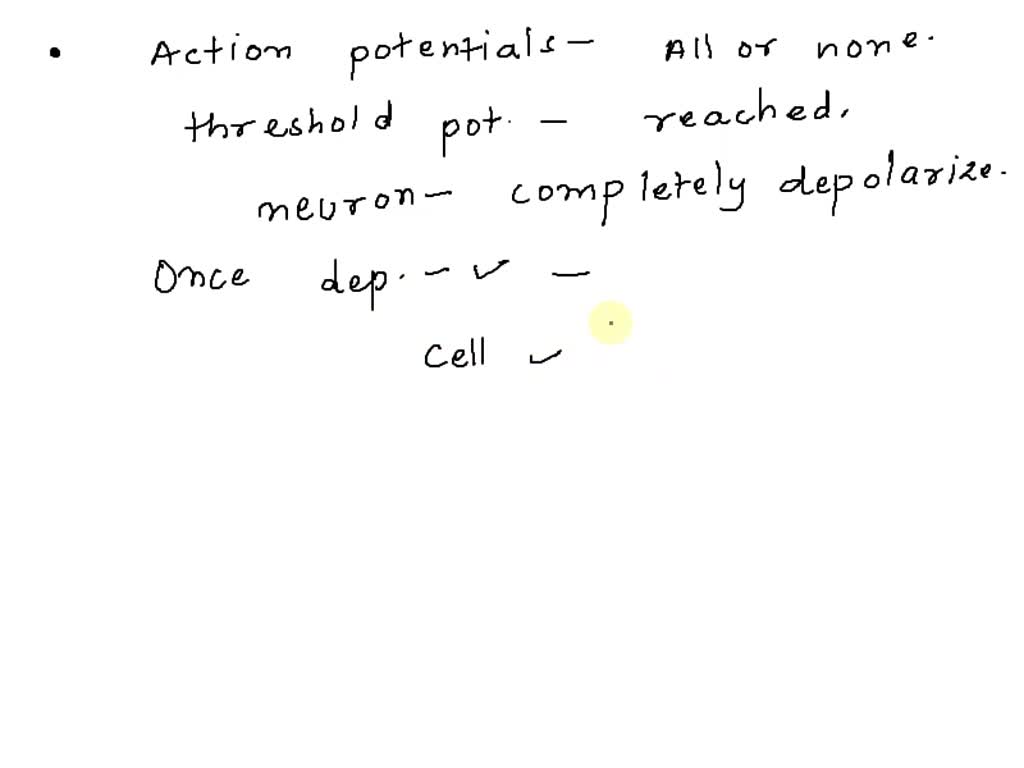 • Action potentials - All or none.
threshold pot. - reached.
neuron - completely depolarize.
Once dep. - ✓ -
cell ✓